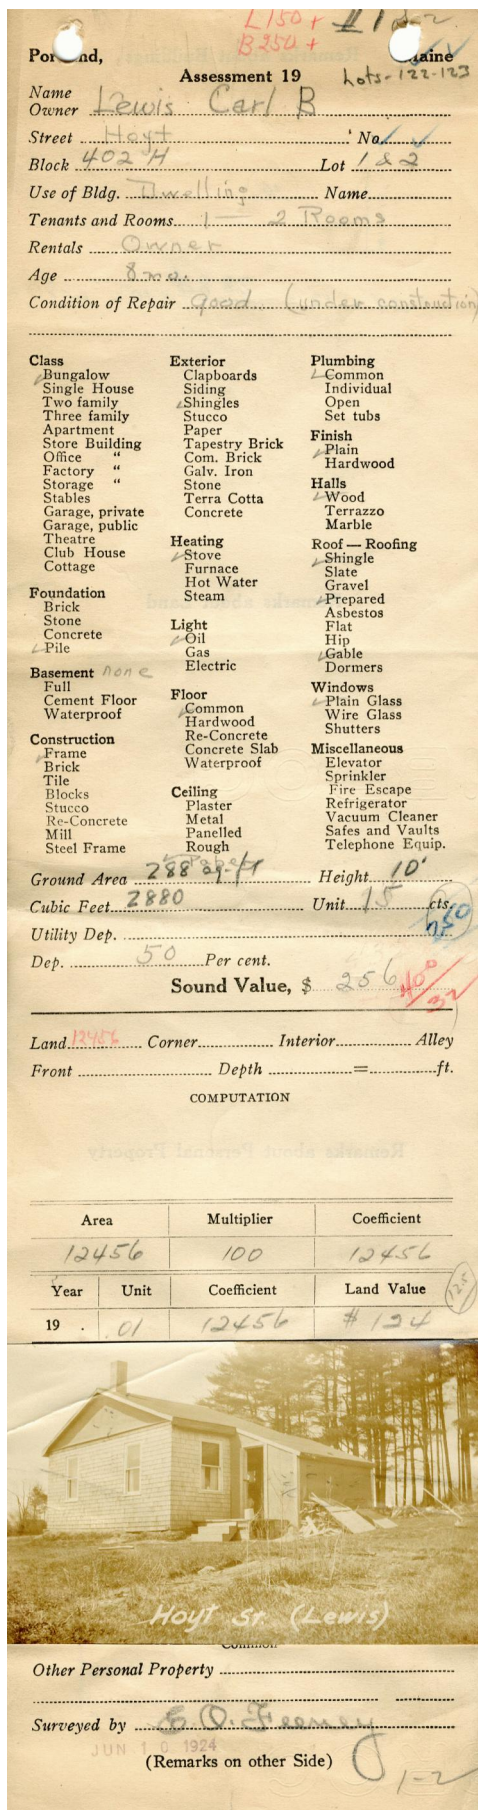 L150+ #1 1-2
B250+
Portland, Maine
Assessment 19 Lots-122-123
Name
Owner Lewis Carl B
Street Hoyt No.
Block 402 H Lot 1 & 2
Use of Bldg. Dwelling Name
Tenants and Rooms 1 — 2 Rooms
Rentals Owner
Age 8 mo.
Condition of Repair good (under construction)
Class
Bungalow
Single House
Two family
Three family
Apartment
Store Building
Office "
Factory "
Storage "
Stables
Garage, private
Garage, public
Theatre
Club House
Cottage
Foundation
Brick
Stone
Concrete
Pile
Basement none
Full
Cement Floor
Waterproof
Construction
Frame
Brick
Tile
Blocks
Stucco
Re-Concrete
Mill
Steel Frame
Exterior
Clapboards
Siding
Shingles
Stucco
Paper
Tapestry Brick
Com. Brick
Galv. Iron
Stone
Terra Cotta
Concrete
Heating
Stove
Furnace
Hot Water
Steam
Light
Oil
Gas
Electric
Floor
Common
Hardwood
Re-Concrete
Concrete Slab
Waterproof
Ceiling
Plaster
Metal
Panelled
Rough
Paper
Plumbing
Common
Individual
Open
Set tubs
Finish
Plain
Hardwood
Halls
Wood
Terrazzo
Marble
Roof — Roofing
Shingle
Slate
Gravel
Prepared
Asbestos
Flat
Hip
Gable
Dormers
Windows
Plain Glass
Wire Glass
Shutters
Miscellaneous
Elevator
Sprinkler
Fire Escape
Refrigerator
Vacuum Cleaner
Safes and Vaults
Telephone Equip.
Ground Area 288 sq-ft Height 10'
Cubic Feet 2880 Unit 15 cts.
Utility Dep. 250
Dep. 50 Per cent.
Sound Value, $ 256
Land 12456 Corner Interior Alley
Front Depth = ft.
COMPUTATION
Area Multiplier Coefficient
12456 100 12456
Year Unit Coefficient Land Value 125
19 . .01 12456 $124
Hoyt St. (Lewis)
Common
Other Personal Property
Surveyed by E. O. Feeney
JUN 10 1924
(Remarks on other Side) 1-2